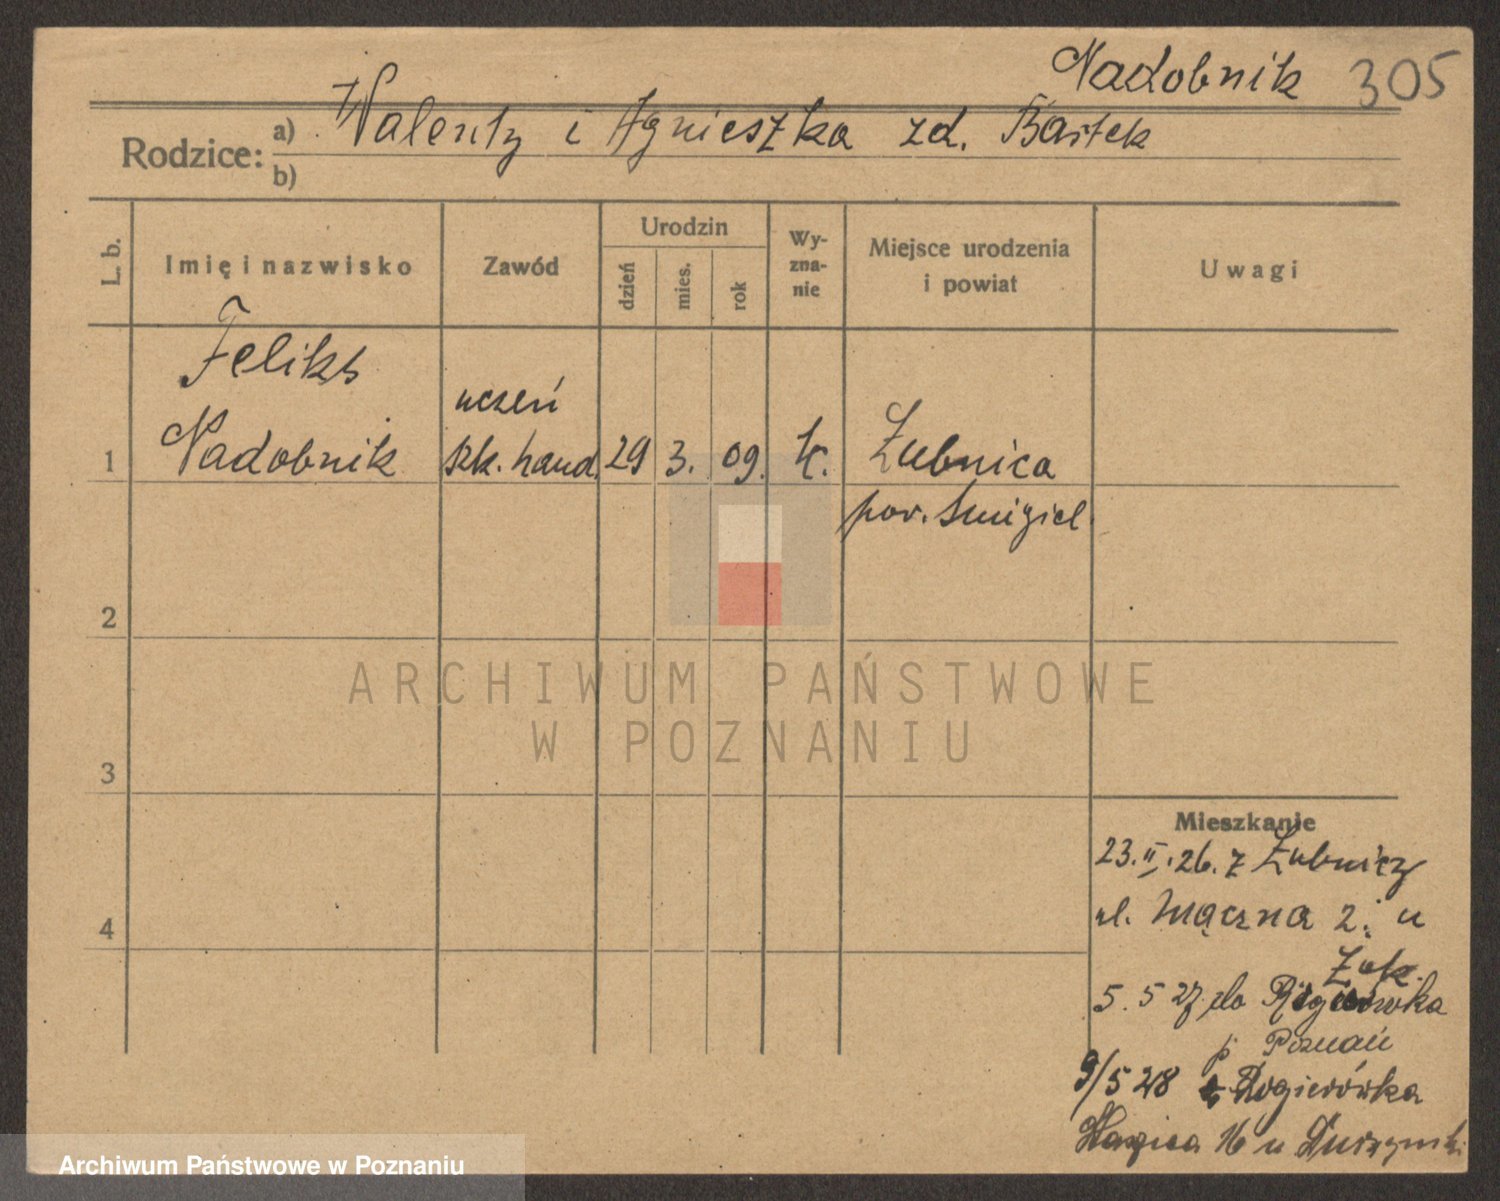 Nadobnik 305
Rodzice: a) Walenty i Agnieszka zd. Bartek
b)
L. b.
Imię i nazwisko
Zawód
Urodzin
dzień
mies.
rok
Wy-
zna-
nie
Miejsce urodzenia
i powiat
Uwagi
Feliks
uczeń
1 Nadobnik szk. hand. 29 3. 09. k. Żubnica
pow. Śmigiel
2
3
4
ARCHIWUM PAŃSTWOWE
W POZNANIU
Mieszkanie
23.II.26. z Żubnicy
ul. Mączna 2. u
Żuk.
5. 5 27 do Rogierówka
p. Poznań
9/5 28 z Rogierówka
16 u
Archiwum Państwowe w Poznaniu